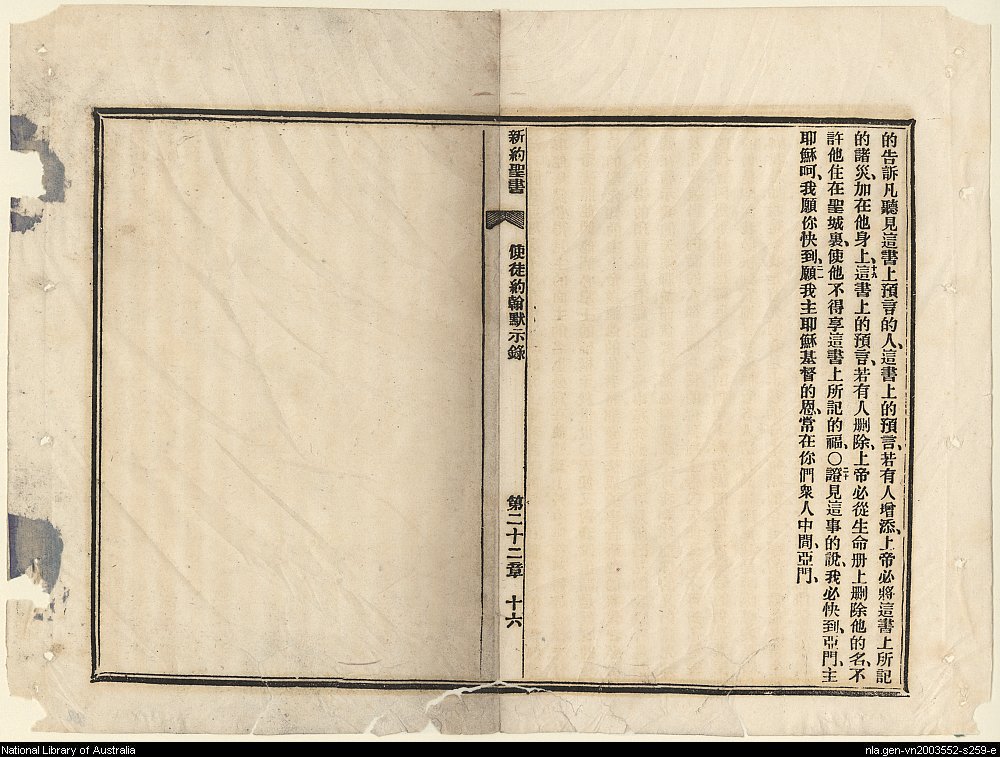 的告訴凡聽見這書上預言的人、這書上的預言、若有人增添、上帝必將這書上所記
的諸災、加在他身上、十九這書上的預言、若有人刪除、上帝必從生命册上刪除他的名、不
許他住在聖城裏、使他不得享這書上所記的福、〇二十證見這事的說、我必快到、亞門、主
耶穌呵、我願你快到、二一願我主耶穌基督的恩、常在你們衆人中間、亞門、
新約聖書
使徒約翰默示錄
第二十二章 十六
National Library of Australia
nla.gen-vn2003552-s259-e